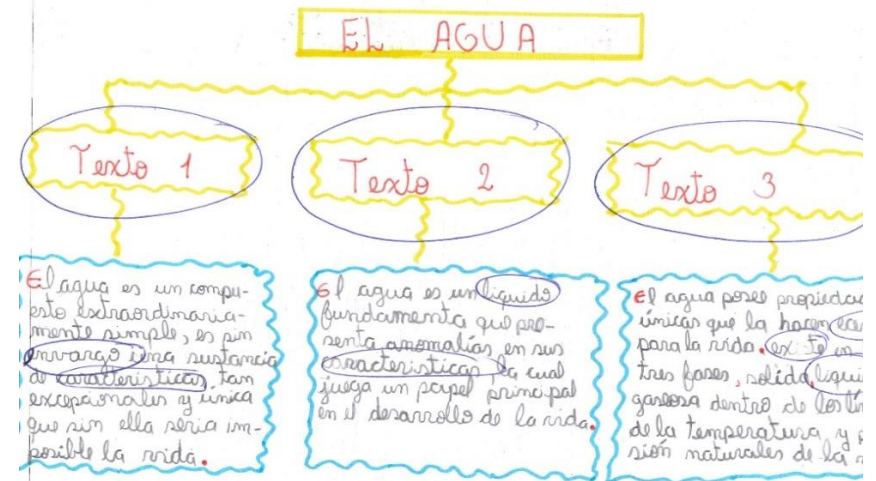 EL AGUA
Texto 1
Texto 2
Texto 3
El agua es un compu-
esto extraordinaria-
mente simple, es sin
envargo una sustancia
de caracteristicas tan
excepcionales y única
que sin ella seria im-
posible la vida.
El agua es un liquido
fundamenta que pre-
senta anomalías en sus
caracteristicas la cual
juega un papel principal
en el desarrollo de la vida.
El agua posee propiedad
únicas que la hacen
para la vida. existe en
tres fases, solida, liqui
gaseosa dentro de los
de la temperatura y
sión naturales de la